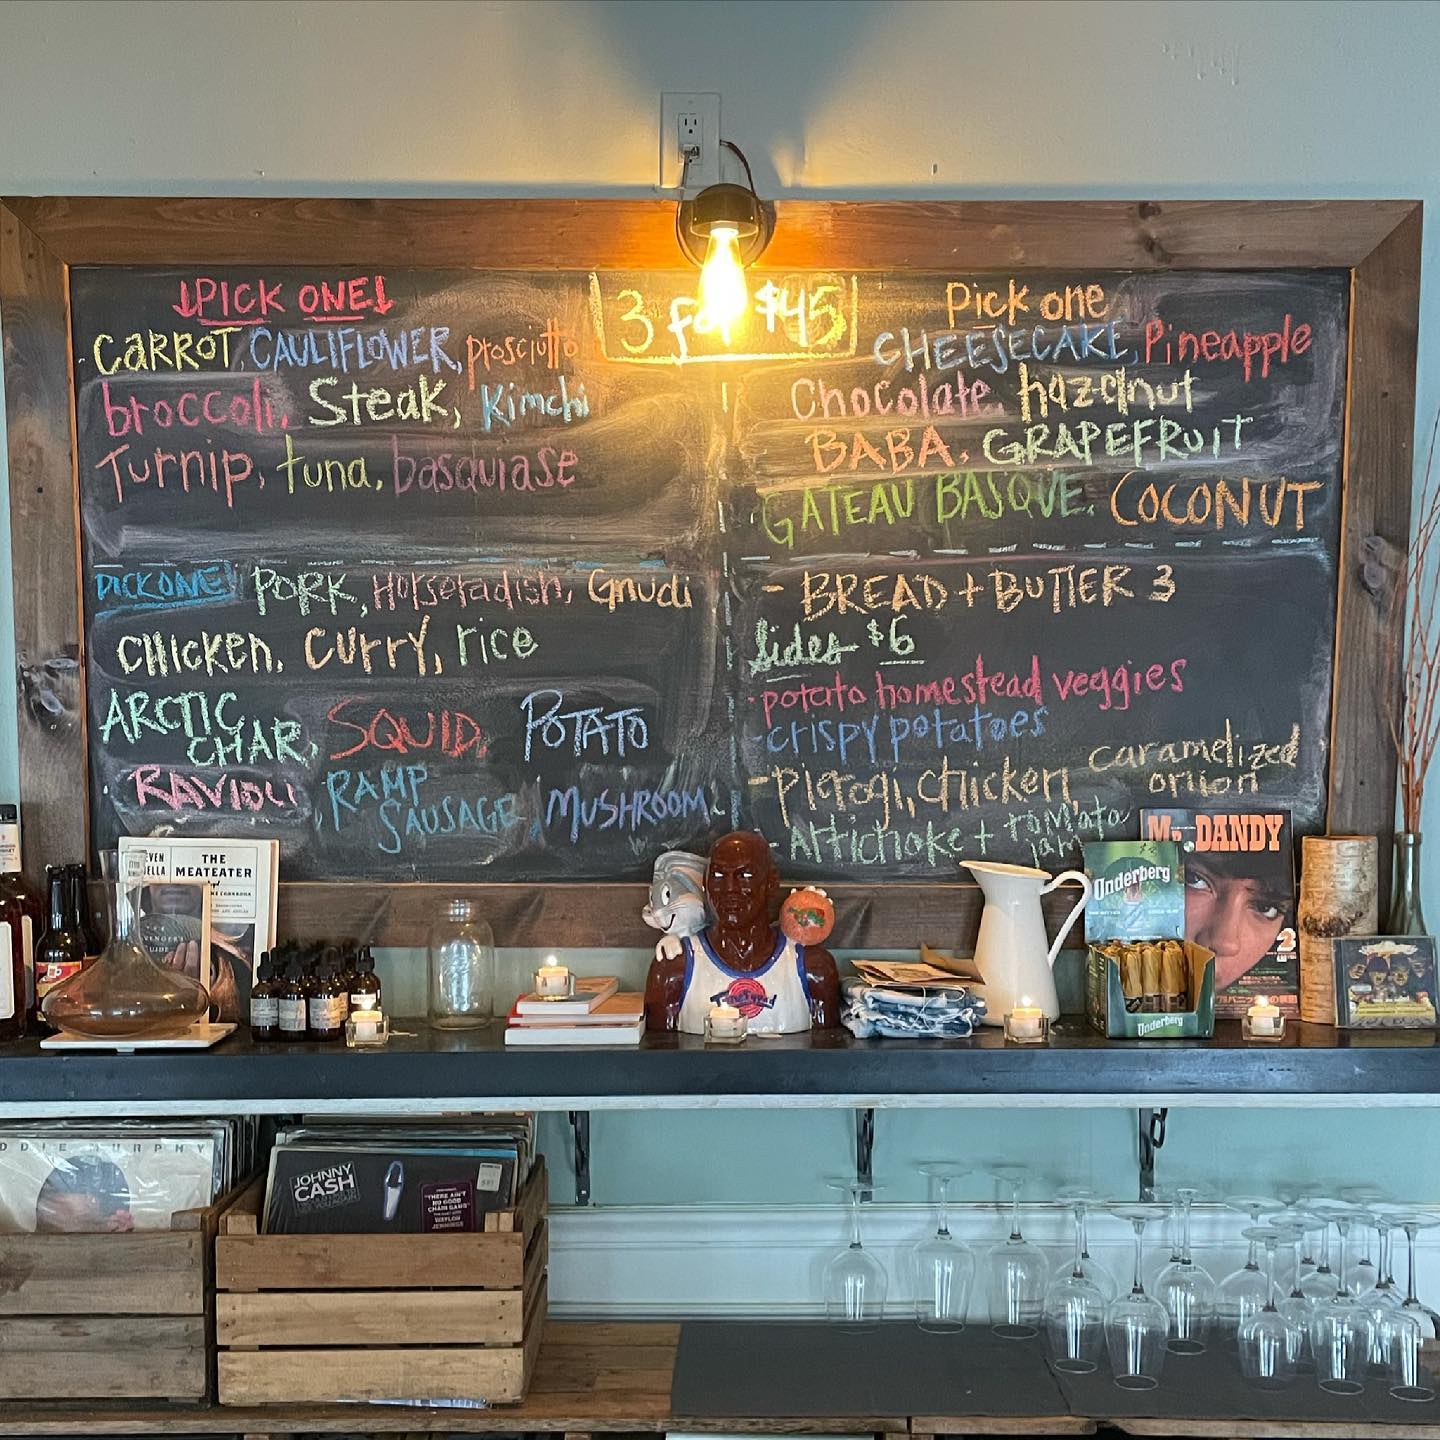 PICK ONE
CARROT, CAULIFLOWER, prosciutto
broccoli, Steak, Kimchi
Turnip, tuna, basquiase
3 for $45
Pick one
CHEESECAKE, Pineapple
Chocolate, hazelnut
BABA, GRAPEFRUIT
GATEAU BASQUE, COCONUT
PICK ONE! PORK, Horseradish, Gnudi
CHICKEN, CURRY, rice
ARCTIC CHAR, SQUID, POTATO
RAVIOLI, RAMP SAUSAGE, MUSHROOM
- BREAD + BUTTER 3
Sides $6
- potato homestead veggies
- crispy potatoes
- pierogi, chicken, caramelized onion
- Artichoke + tomato jam
THE
MEATEATER
Mr. DANDY
Underberg
Underberg
DDIE MURPHY
JOHNNY
CASH
"THERE AIN'T
NO GOOD
CHAIN GANG"
WAYLON
JENNINGS